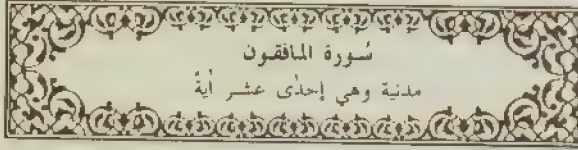 سورة المافقون
مدنية وهي إحدى عشر أية